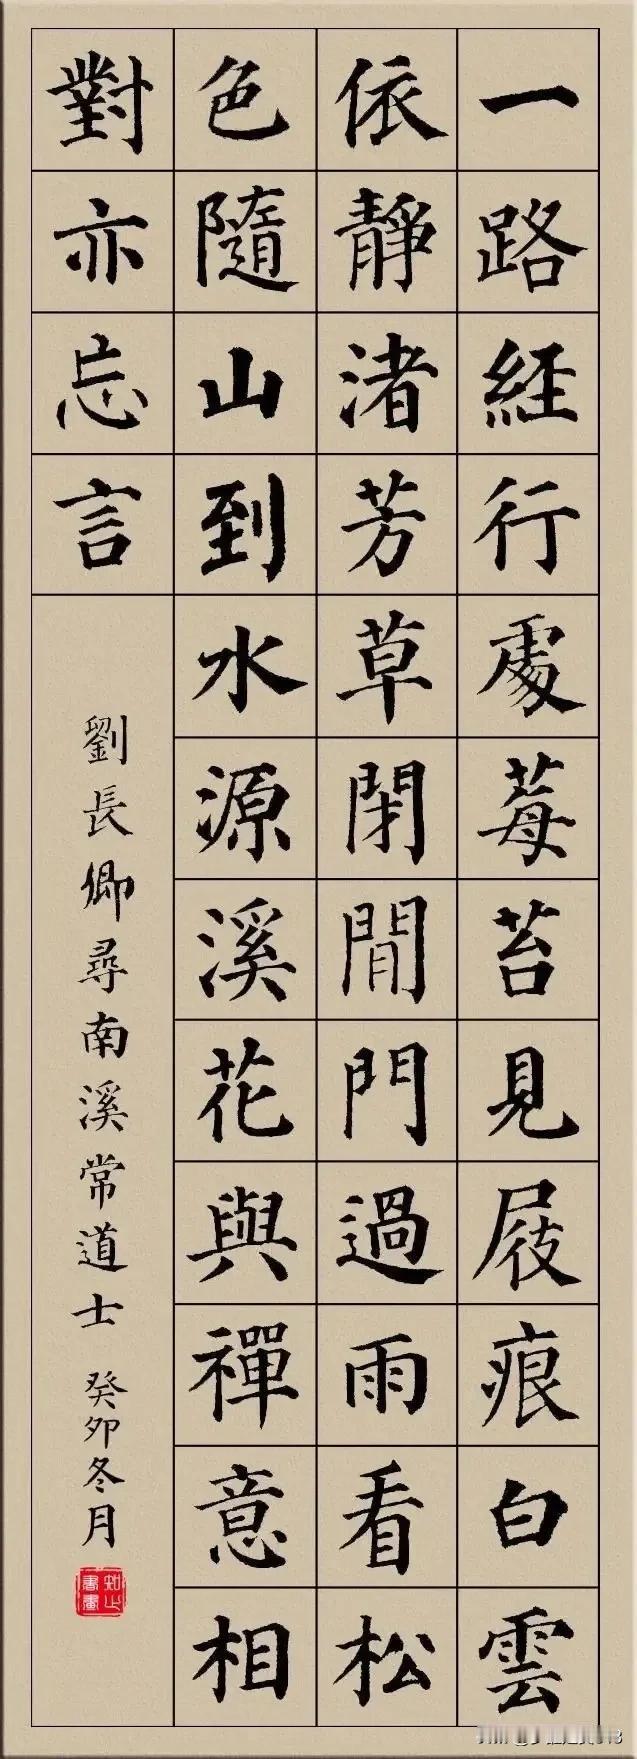 一路經行處莓苔見屐痕白雲
依靜渚芳草閉閒門過雨看松
色隨山到水源溪花與禪意相
對亦忘言
劉長卿尋南溪常道士 癸卯冬月
知止書畫